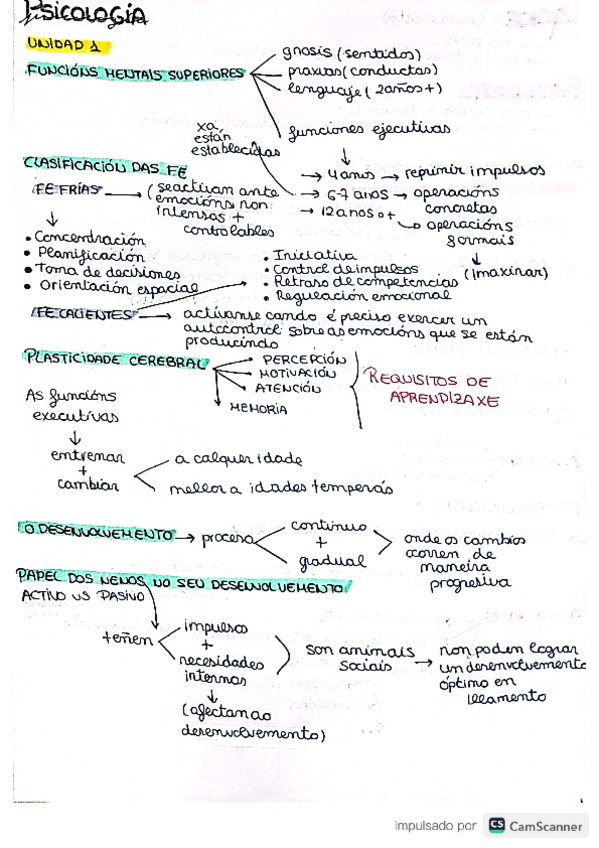 PSICOLOGÍA
UNIDAD 1
FUNCIÓNS MENTAIS SUPERIORES
gnosis (sentidos)
praxias (conductas)
lenguaje (2años+)
funciones ejecutivas
xa
están
establecidas
→ 4 anos → reprimir impulsos
→ 6-7 anos → operacións
concretas
→ 12 anos o +
operacións
formais
(imaxinar)
CLASIFICACIÓN DAS FE
FE FRÍAS → (se activan ante
emocións non
intensas +
controlables
• Concentración
• Planificación
• Toma de decisiones
• Orientación espacial
• Iniciativa
• Control de impulsos
• Retraso de competencias
• Regulación emocional
FE CALIENTES → actívanse cando é preciso exercer un
autocontrol sobre as emocións que se están
producindo
PLASTICIDADE CEREBRAL
PERCEPCIÓN
MOTIVACIÓN
ATENCIÓN
MEMORIA
REQUISITOS DE
APRENDIZAXE
As funcións
executivas
entrenar
+
cambiar
a calquer idade
mellor a idades temperás
O DESENVOLVEMENTO → proceso
continuo
+
gradual
onde os cambios
ocorren de
maneira
progresiva
PAPEL DOS NENOS NO SEU DESENVOLVEMENTO
ACTIVO VS PASIVO
teñen
impulsos
+
necesidades
internas
(afectan ao
desenvolvemento)
son animais
sociais
→ non poden lograr
un desenvolvemento
óptimo en
illamento
impulsado por CS CamScanner